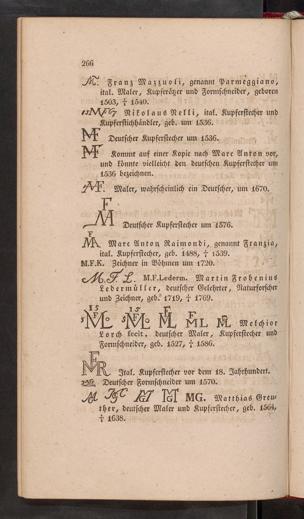 266
Franz Mazzuoli, genannt Parmeggiano,
ital. Maler, Kupferätzer und Formschneider, geboren
1503, † 1540.
Nikolaus Nelli, ital. Kupferstecher und
Kupferstichhändler, geb. um 1536.
Deutscher Kupferstecher um 1536.
Kommt auf einer Kopie nach Marc Anton vor,
und könnte vielleicht den deutschen Kupferstecher um
1536 bezeichnen.
Maler, wahrscheinlich ein Deutscher, um 1670.
Deutscher Kupferstecher um 1576.
Marc Anton Raimondi, genannt Franzia,
ital. Kupferstecher, geb. 1488, † 1539.
M.F.K. Zeichner in Böhmen um 1720.
M.F.L. M.F.Lederm. Martin Frobenius
Ledermüller, deutscher Gelehrter, Naturforscher
und Zeichner, geb. 1719, † 1769.
Melchior
Lorch fecit, deutscher Maler, Kupferstecher und
Formschneider, geb. 1527, † 1586.
Ital. Kupferstecher vor dem 18. Jahrhundert.
Deutscher Formschneider um 1570.
MG. Matthias Greu-
ther, deutscher Maler und Kupferstecher, geb. 1564,
† 1638.